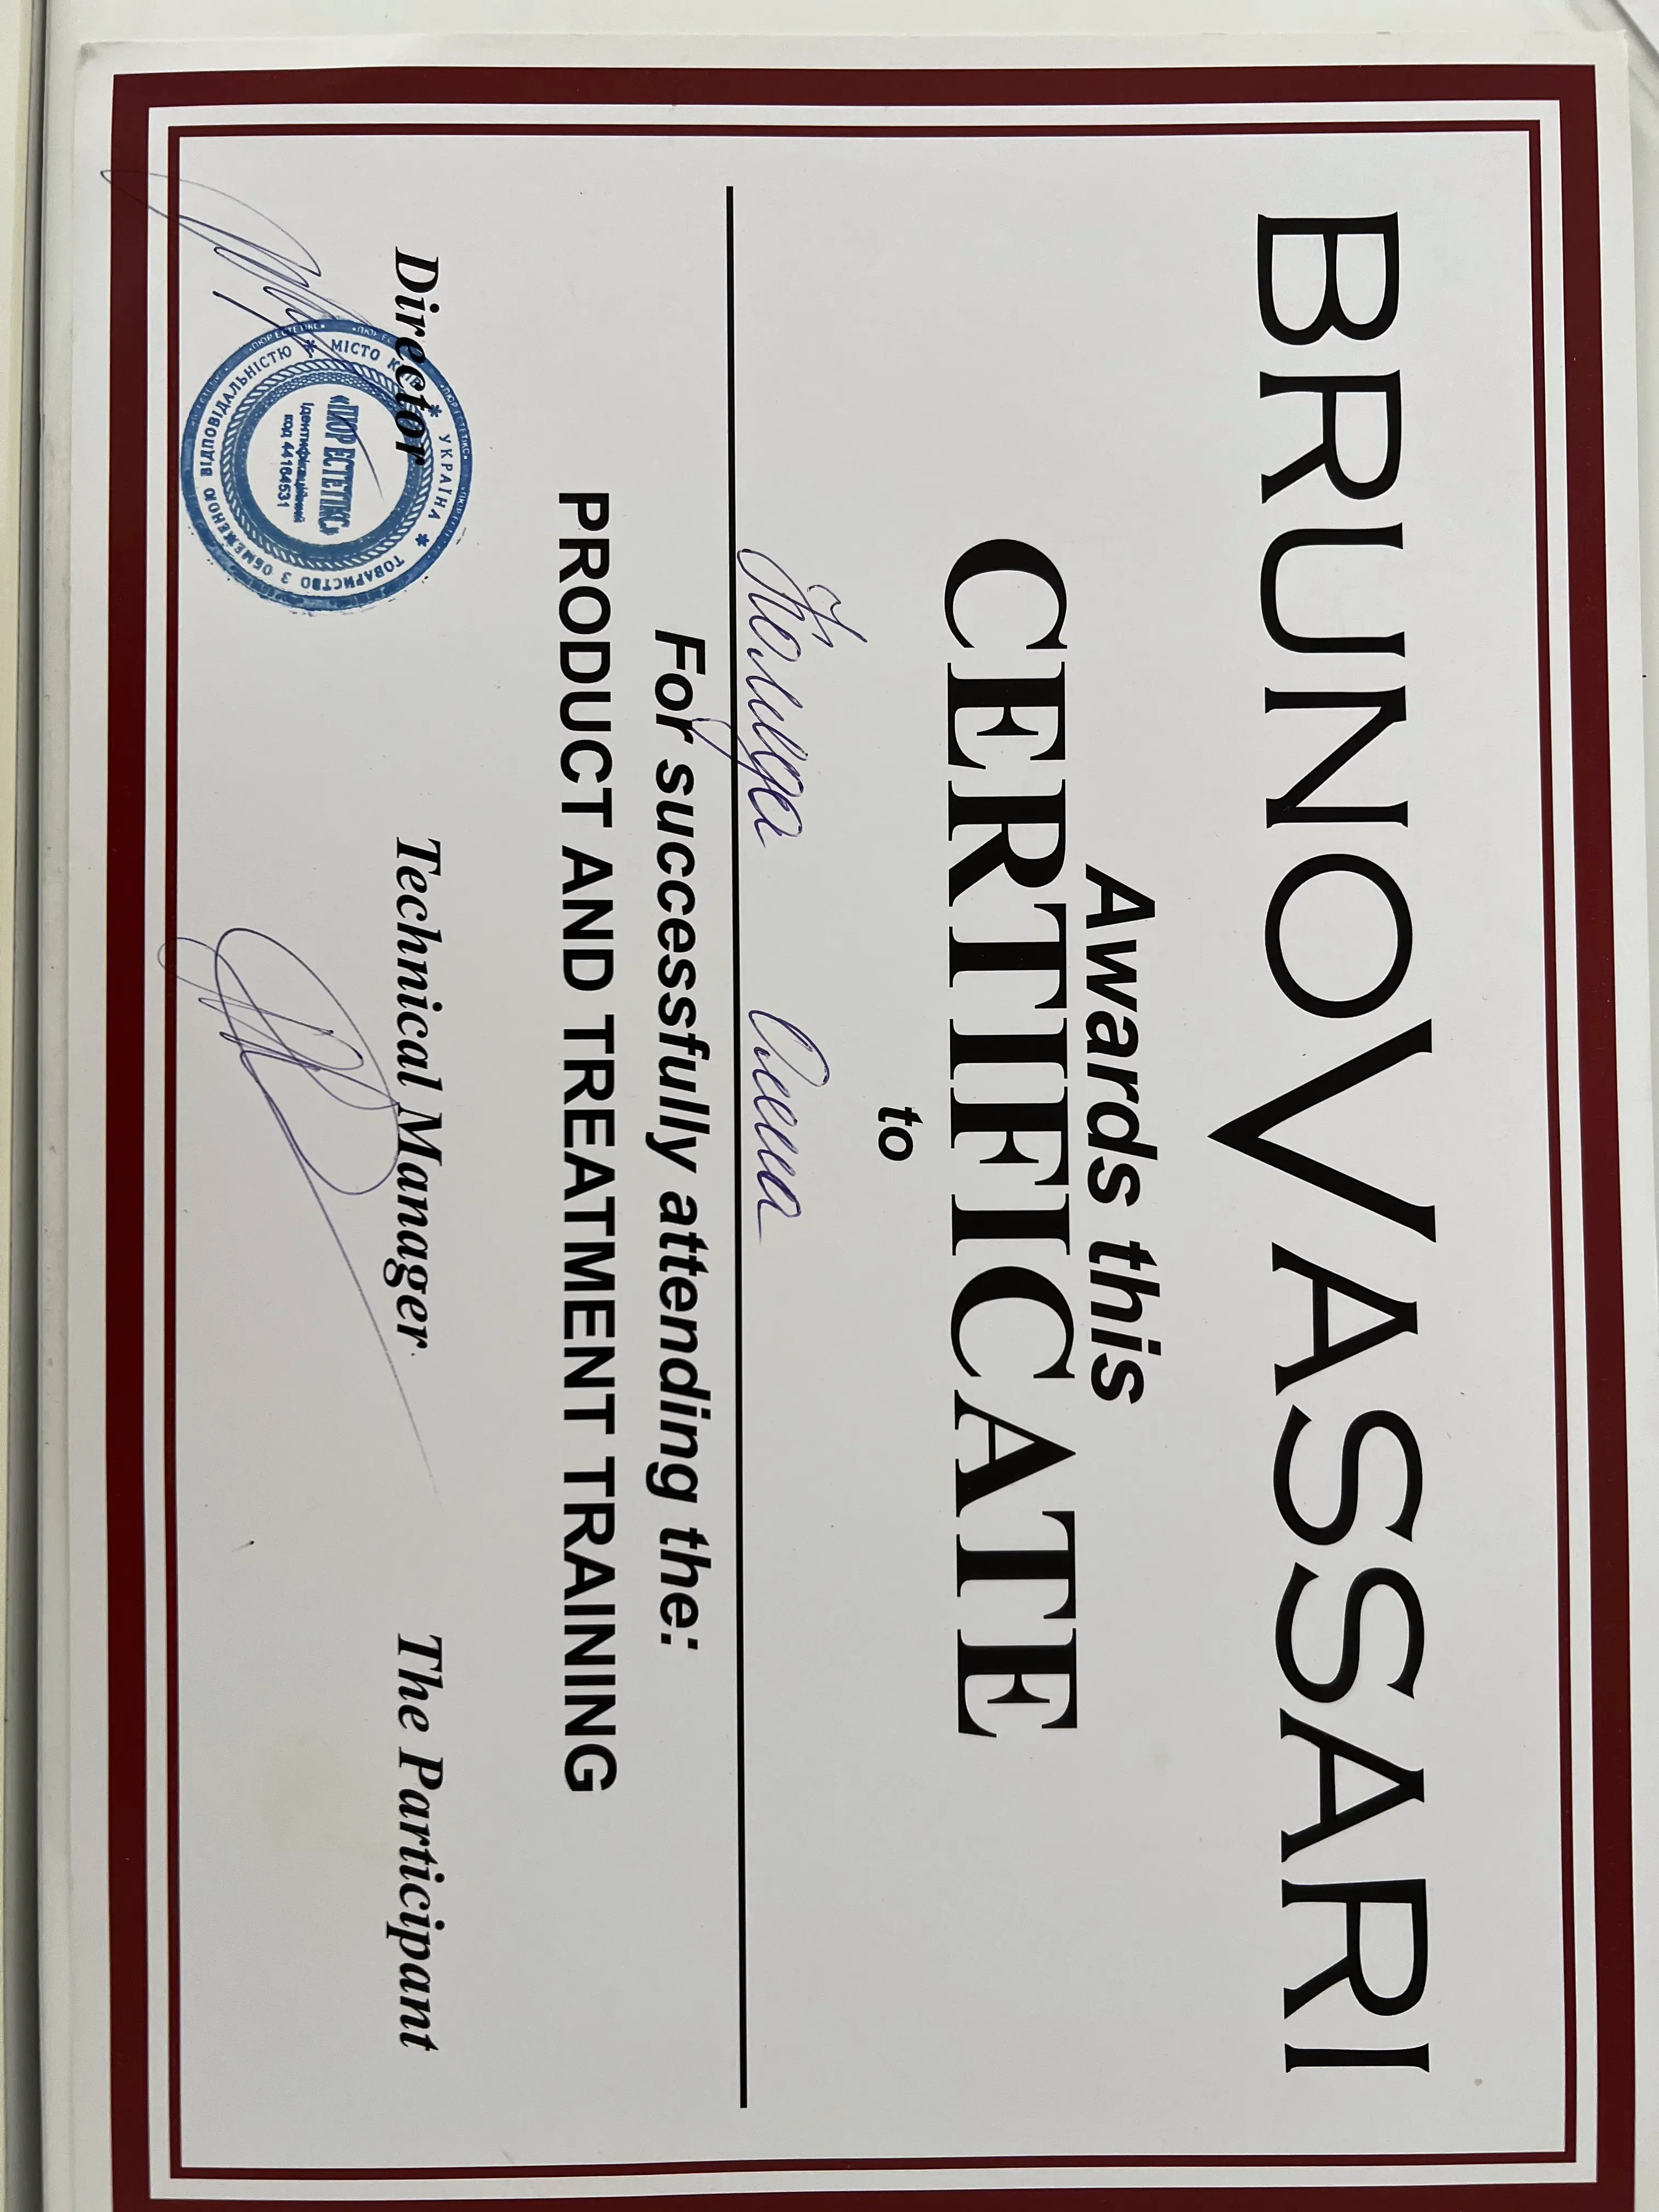 BRUNO VASSARI
Awards this
CERTIFICATE
to
For successfully attending the:
PRODUCT AND TREATMENT TRAINING
Director Technical Manager The Participant
УКРАЇНА * ТОВАРИСТВО З ОБМЕЖЕНОЮ ВІДПОВІДАЛЬНІСТЮ * МІСТО
«ПЮР ЕСТЕТІКС»
Ідентифікаційний
код 44164531